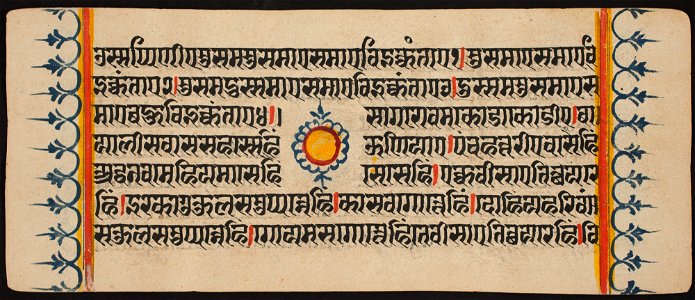 उस्सप्पिणीए सुसमसुसमाए समाए विइक्कंताए १। सुसमाए समाए वि
इक्कंताए २। सुसमदुस्समाए समाए विइक्कंताए ३। दुस्समसुसमाए स
माए बहुविइक्कंताए ४॥ सागरोवमकोडाकोडीए। बा
यालीसवाससहस्सेहिं ऊणिआए। पंचहत्तरीए वासेहिं
अद्धनवमेहि य मासेहिं सेसेहिं। इक्कवीसाए तित्थयरे
हिं। इक्खागकुलसमुप्पन्नेहिं। कासवगोत्तेहिं। दोहि य हरिवं
सकुलसमुप्पन्नेहिं। गोयमसगोत्तेहिं तेवीसाए तित्थयरेहिं। वि